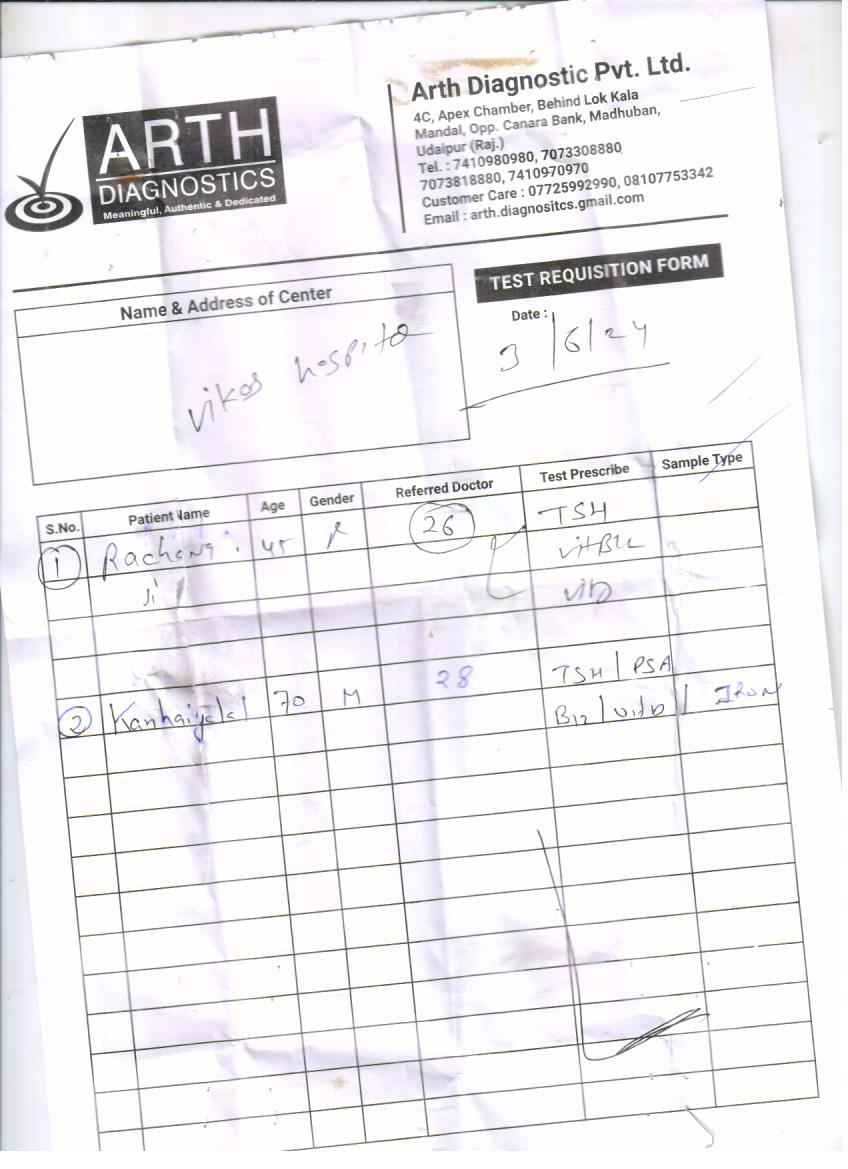 ARTH
DIAGNOSTICS
Meaningful, Authentic & Dedicated
Arth Diagnostic Pvt. Ltd.
4C, Apex Chamber, Behind Lok Kala
Mandal, Opp. Canara Bank, Madhuban,
Udaipur (Raj.)
Tel. : 7410980980, 7073308880
7073818880, 7410970970
Customer Care : 07725992990, 08107753342
Email : arth.diagnositcs.gmail.com
TEST REQUISITION FORM
Name & Address of Center
Date :
3/6/24
vikas hospita
S.No. Patient Name Age Gender Referred Doctor Test Prescribe Sample Type
1 Rachana 45 26 TSH
ji VitB12
vitD
2 Kanhaiyalal 70 M 28 TSH / PSA
B12 / vitD / IRON